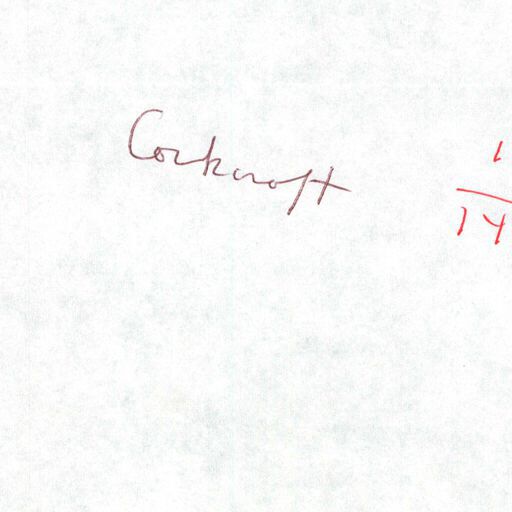 Cockcroft
1
14